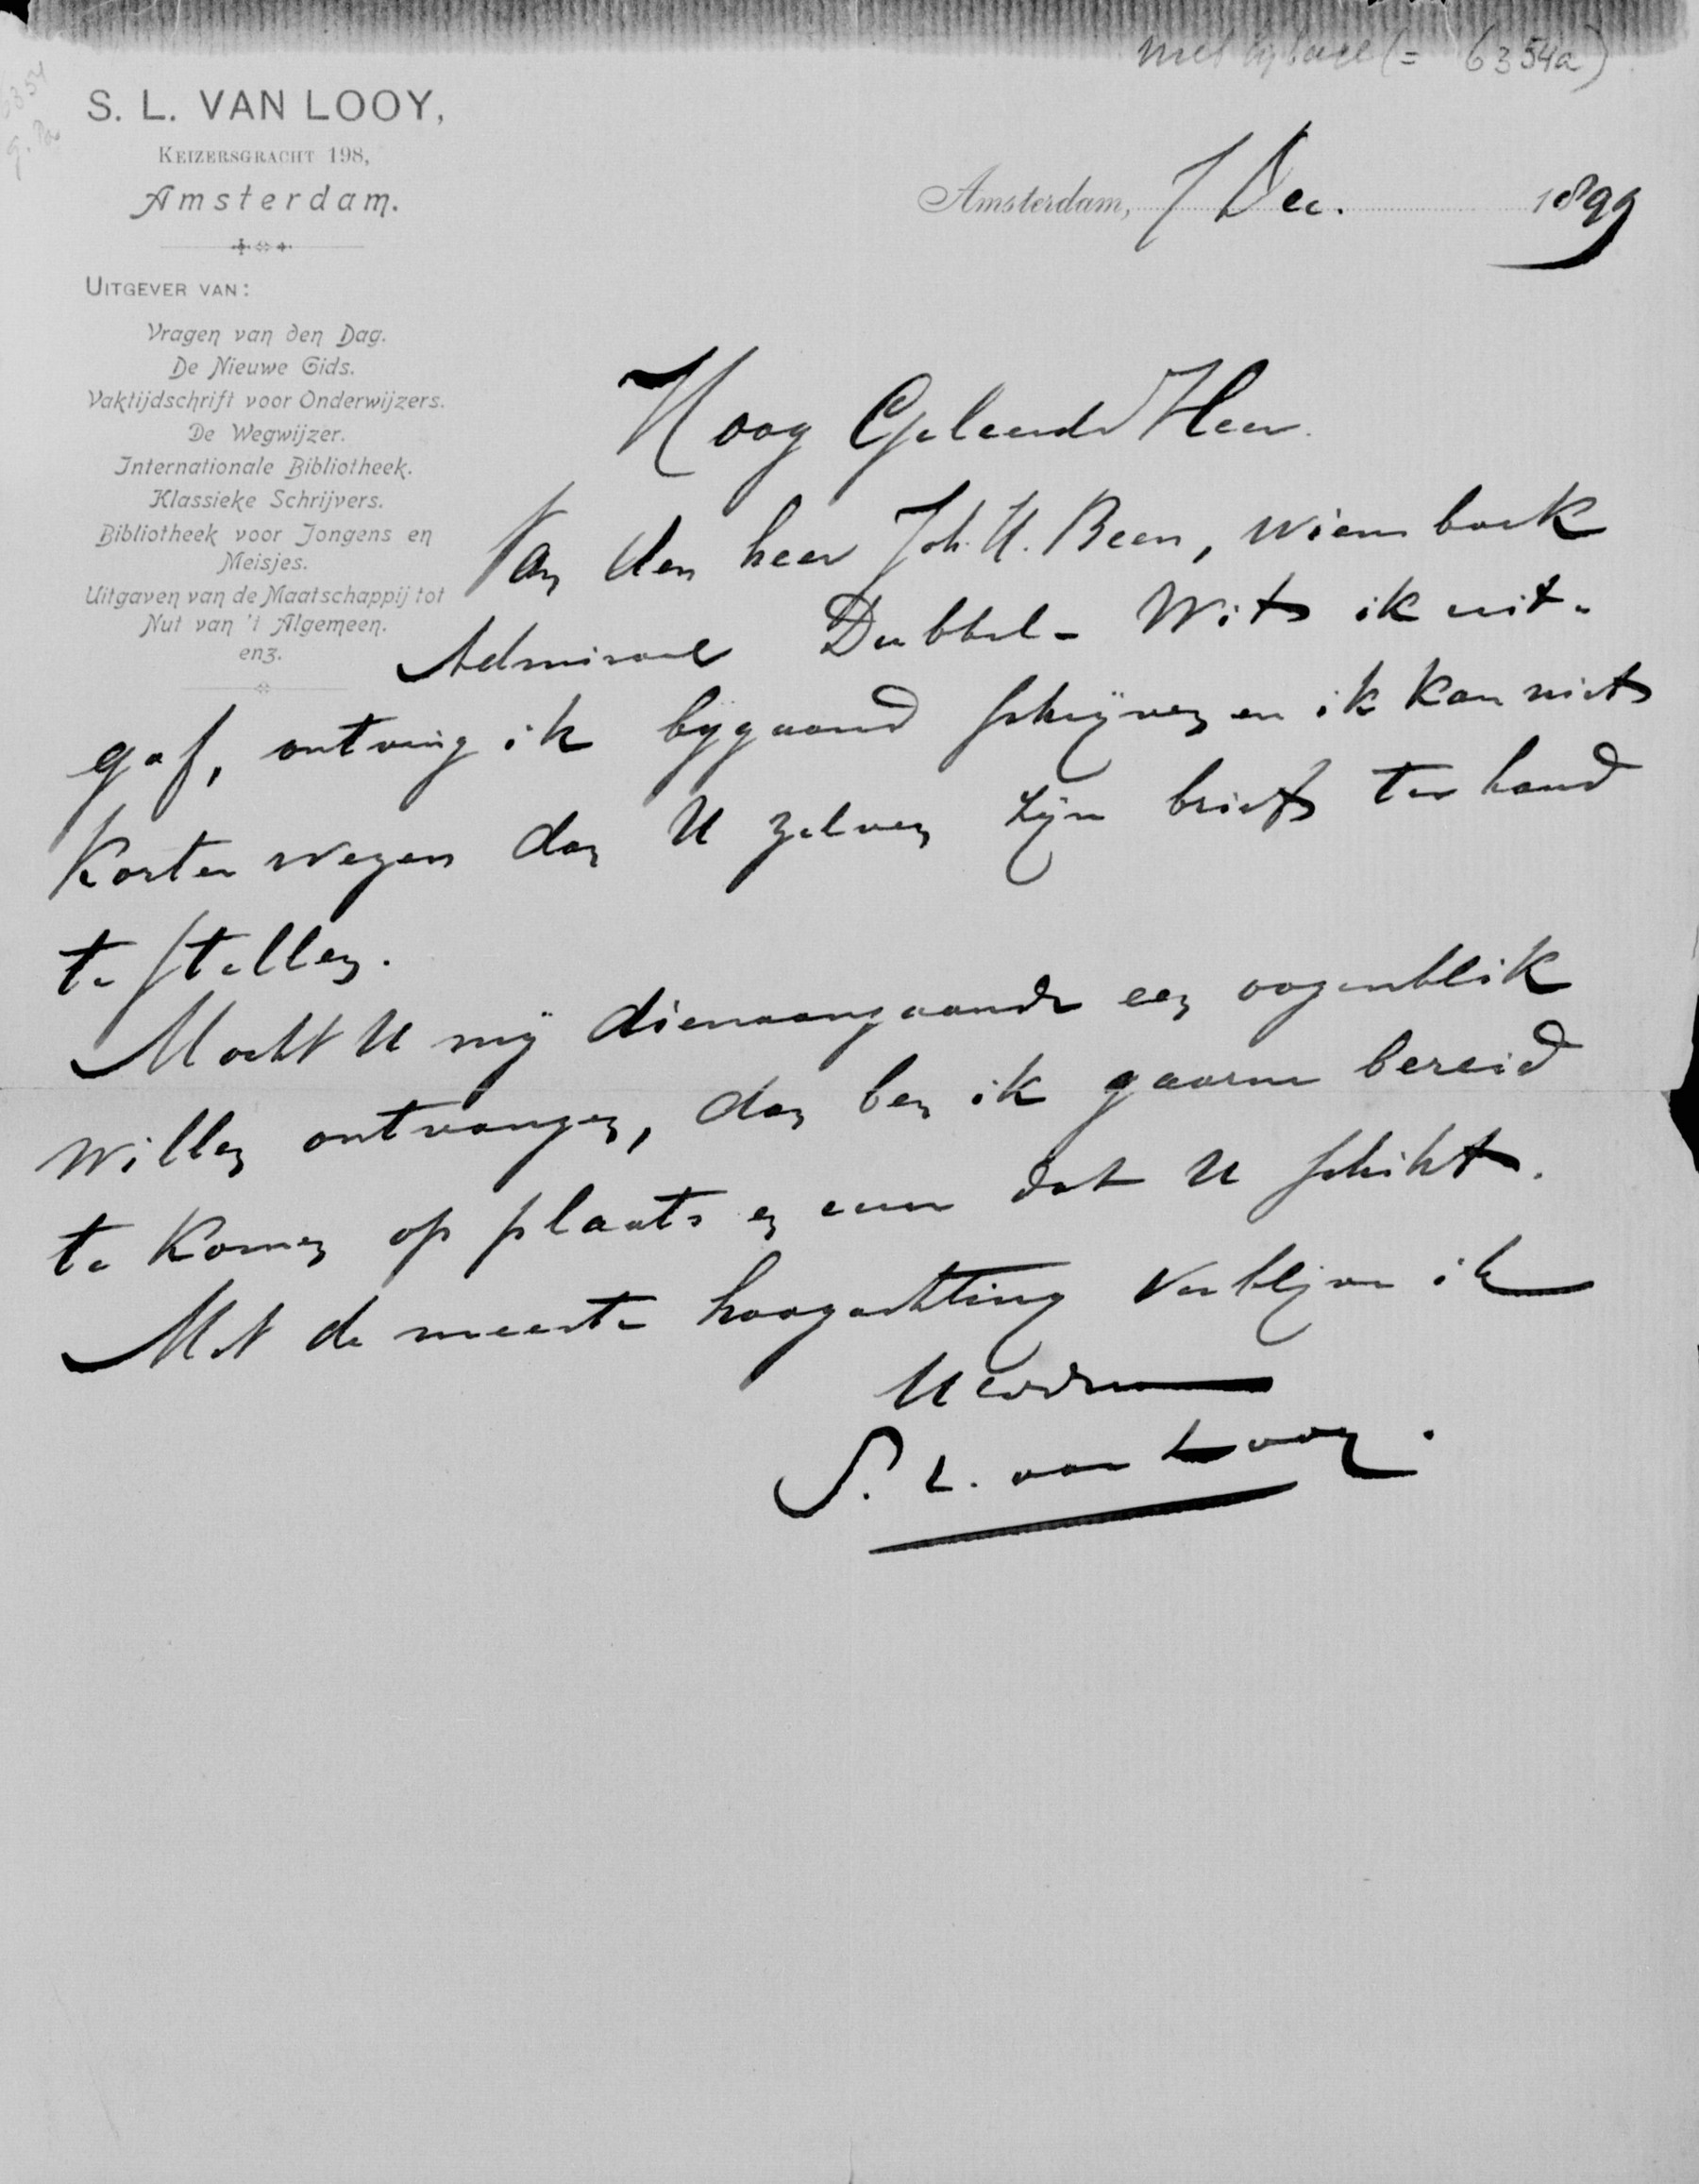 met bijlage (= 6354a)
6354
S. L. VAN LOOY,
KEIZERSGRACHT 198,
Amsterdam.
UITGEVER VAN:
Vragen van den Dag.
De Nieuwe Gids.
Vaktijdschrift voor Onderwijzers.
De Wegwijzer.
Internationale Bibliotheek.
Klassieke Schrijvers.
Bibliotheek voor Jongens en
Meisjes.
Uitgaven van de Maatschappij tot
Nut van 't Algemeen.
enz.
Amsterdam, 7 Dec. 1899
Hoog Geleerde Heer.
Van den heer Joh. H. Been, wiens boek
Admiraal Dubbel-Wit ik uit-
gaf, ontving ik bijgaand schrijven en ik kan niets
korter wegen dan U zelven zijn brief ter hand
te stellen.
Mocht U mij dienaangaande een oogenblik
willen ontvangen, dan ben ik gaarne bereid
te komen op plaats en uur dat U schikt.
Met de meeste hoogachting verblijve ik
UEdDw
S. L. van Looy.